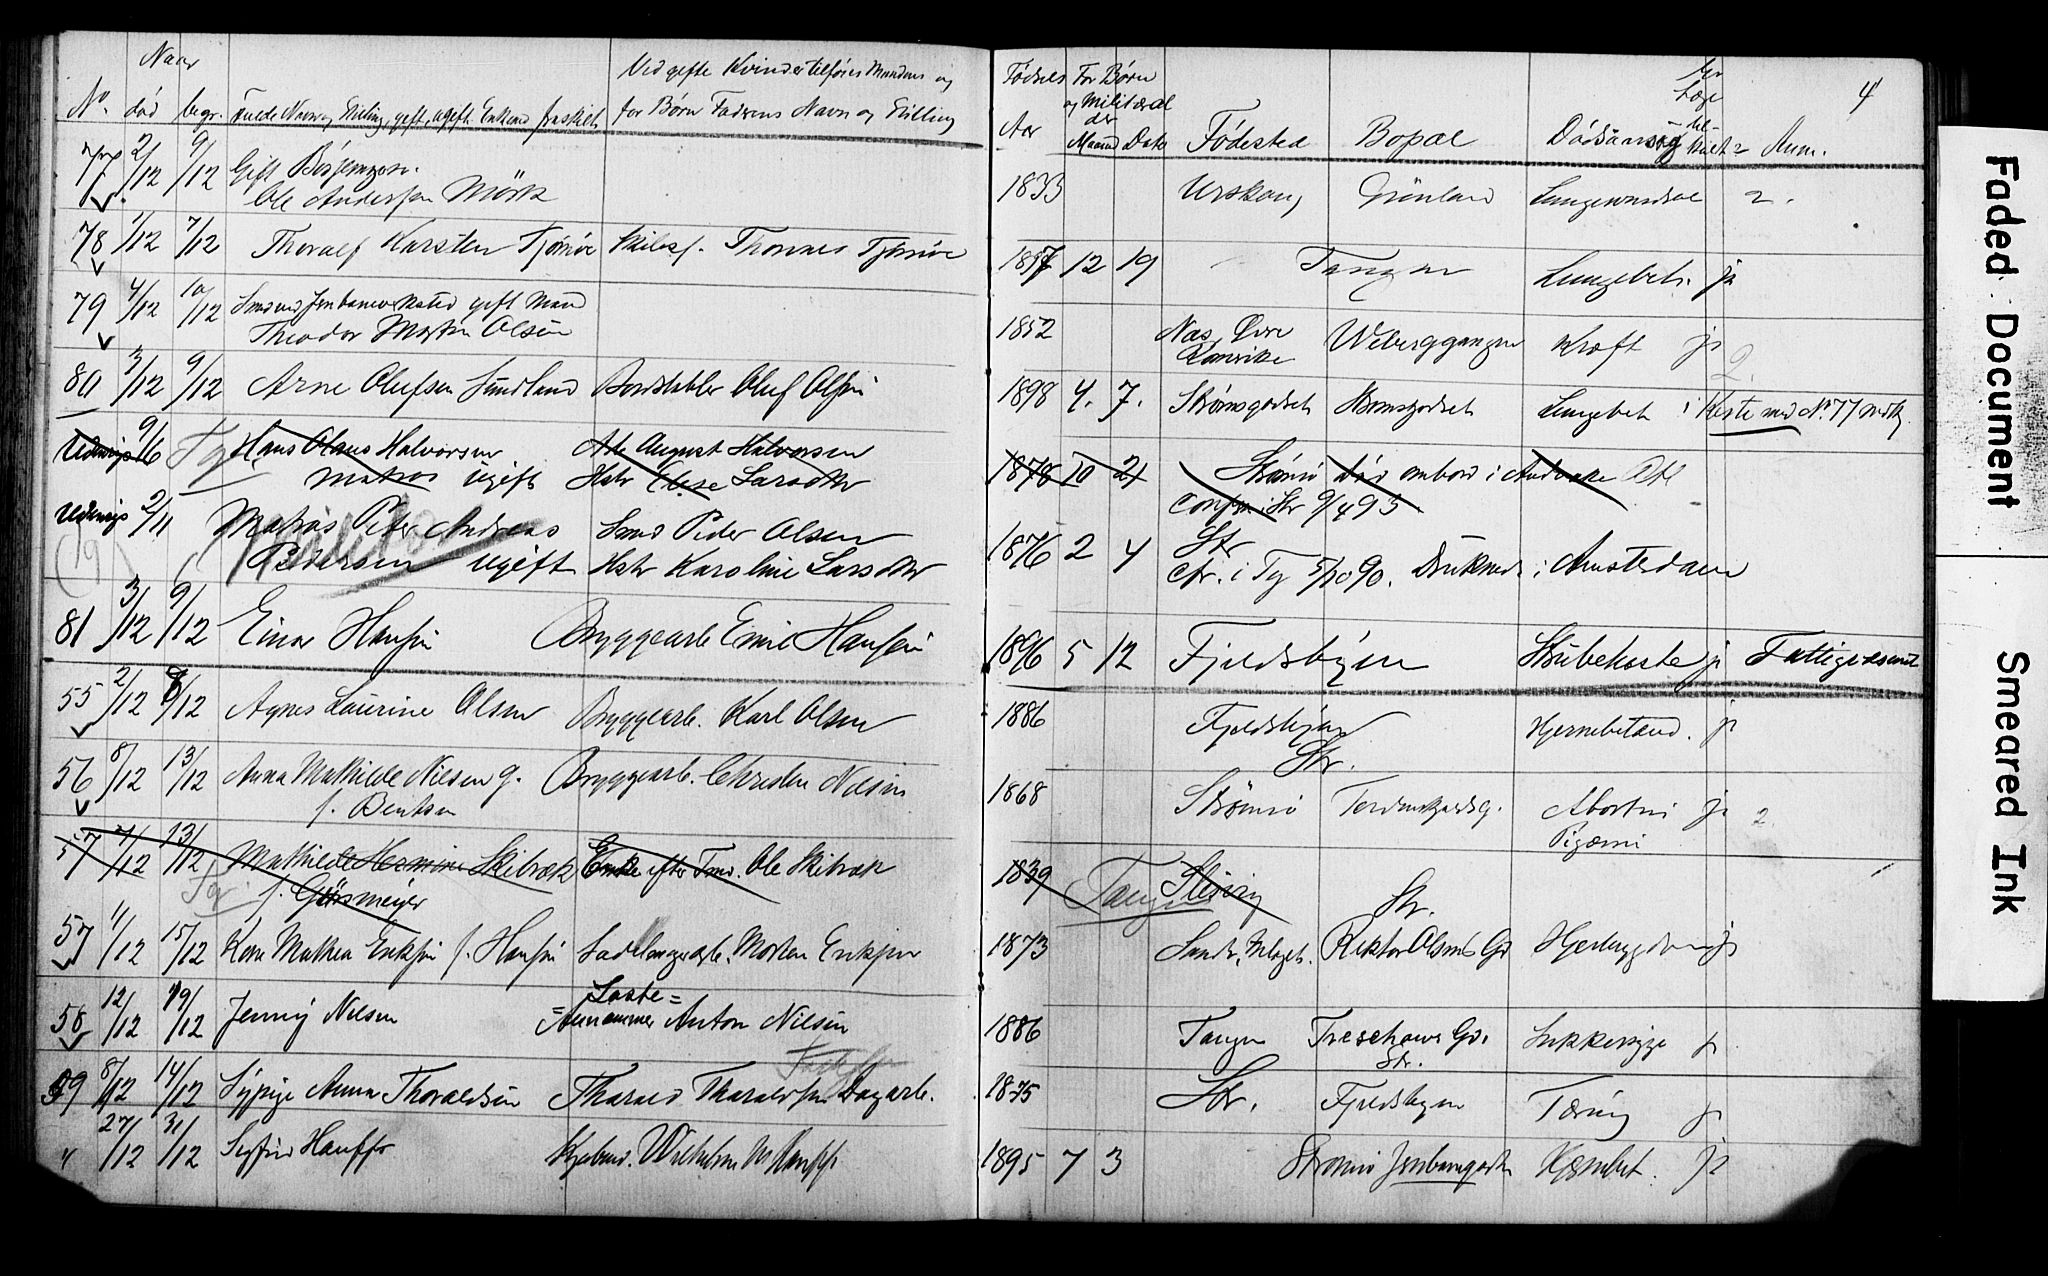 Naar
No. død begr. Fulde Navn og Stilling, gift, ugift, Enkend fraskilt
Ved gifte Kvinder tilføres Mandens og
for Børn Faderens Navn og Stilling
Fødsels Aar
For Børn og Militære der Maaned Dato
Fødested Bopæl Dødsaarsag Læge Anm.
4
77 2/12 9/12 Gift
Ole Andersen Mørk 1833 Urskoug Grønland 2.
78 1/12 7/12 Thoralf Karsten Tjømøe Skibsf. Thomas Tjømøe 1897 12 19 Tangen Lungebet. ja
79 4/12 10/12 Smed ved Jernbanen gift Mand
Theodor Martin Olsen 1852 Næs Øvre Romerike Weberggangen Kræft ja 2.
80 3/12 9/12 Arne Olufsen Sundland Bordstabler Oluf Olsen 1898 4. 7. Strømsgodset Strømsgodset Lungebet i Kiste med No 77 Mørk
Udenrigs 9/6 Tg Hans Olaus Halvorsen
Matros ugift
Arb August Halvorsen
Hstr Else Larsdtr
1878 10 21 Strømsø Død ombord i
Conf. i Str 9/4 93
Udenrigs 2/11 Matros Peter Andreas
Pedersen ugift
Smed Peder Olsen
Hstr Karoline Larsdtr
1876 2 4 Str
Cfr. i Tg 5/10 90. Druknede i Amsterdam
81 3/12 9/12 Einar Hansen Bryggearb Emil Hansen 1896 5 12 Fjeldsbyen Strubehoste ja Fattigvæsenet
55 2/12 8/12 Agnes Laurine Olsen Bryggearb. Karl Olsen 1886 Fjeldsbyen Hjernebetænd. ja
56 8/12 13/12 Anna Mathilde Nilsen g.
f. Bentsen
Bryggearb. Christen Nilsen
Str.
1868 Strømsø Tordenskjoldsg. Abortus ja 2.
57 7/12 13/12 Mathilde Hermine Skibræk Enke efter Tmd. Ole Skibræk
Tg. f. Görsmeyer
1839 Slesvig
Tangen
57 11/12 15/12 Karen Mathea Eriksen f. Hansen Morten Eriksen
Str.
1873 Rektor Olsens Gd ja
58 12/12 19/12 Jenny Nilsen
Laste=
Anton Nilsen 1886 Tangen Treschows Gd. Sukkersyge ja
59 8/12 14/12 Sypige Anna Thoraldsen Tharald Tharaldsen Dagarb.
Str.
1875 Str. Fjeldsbyen Tæring ja
27/12 31/12 Sigfrid Hauff Wilhelm Hauff 1895 7 3 Strømsø ja
Faded Document
Smeared Ink